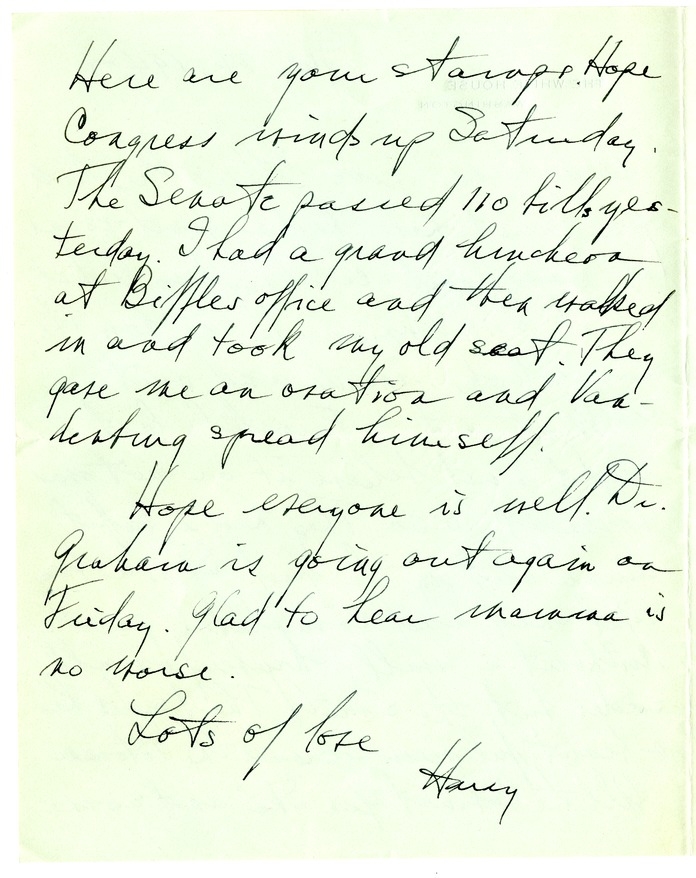 Here are your stamps. Hope
Congress winds up Saturday.
The Senate passed 110 bills yes-
terday. I had a grand luncheon
at Biffles office and then walked
in and took my old seat. They
gave me an ovation and Van-
denburg spread himself.
Hope everyone is well. Dr.
Graham is going out again on
Friday. Glad to hear mamma is
no worse.
Lots of love
Harry
THE WHITE HOUSE
WASHINGTON